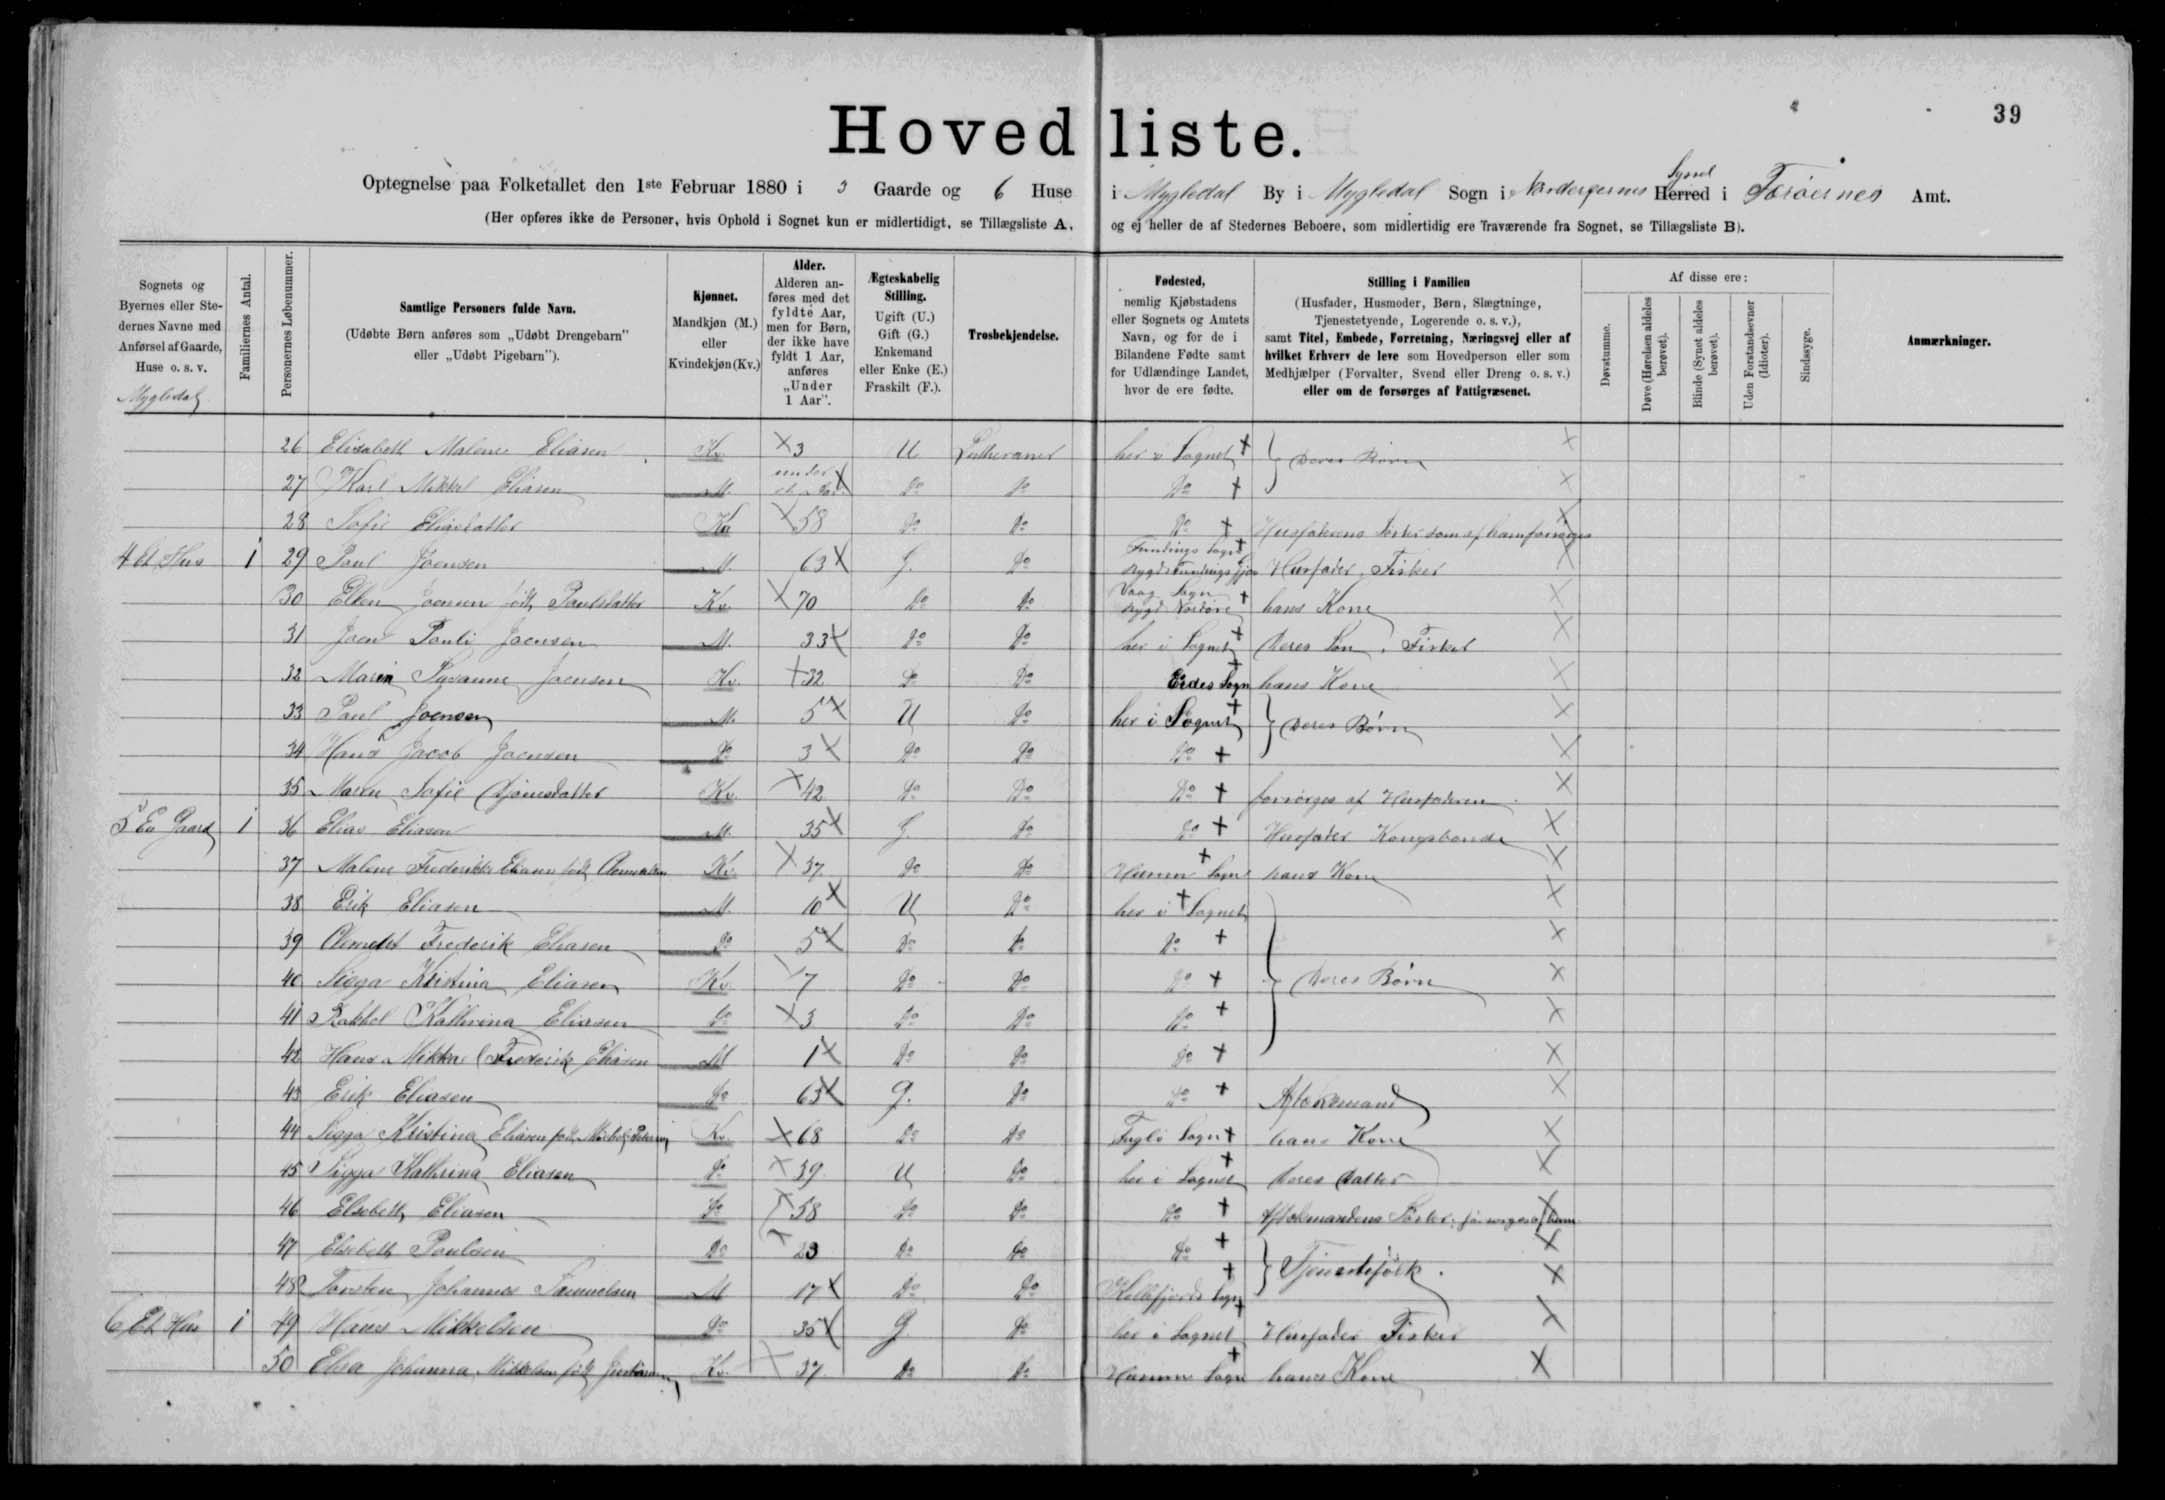 39
Hovedliste.
Optegnelse paa Folketallet den 1ste Februar 1880 i 3 Gaarde og 6 Huse i Mygledal By i Mygledal Sogn i Norderøernes Herred Syssel i Færøernes Amt.
(Her opføres ikke de Personer, hvis Ophold i Sognet kun er midlertidigt, se Tillægsliste A, og ej heller de af Stedernes Beboere, som midlertidig ere fraværende fra Sognet, se Tillægsliste B).
Sognets og Byernes eller Stedernes Navne med Anførsel af Gaarde, Huse o. s. v.
Familiernes Antal.
Personernes Løbenummer.
Samtlige Personers fulde Navn.
(Udøbte Børn anføres som „Udøbt Drengebarn" eller „Udøbt Pigebarn").
Kjønnet.
Mandkjøn (M.) eller Kvindekjøn (Kv.)
Alder.
Alderen anføres med det fyldte Aar, men for Børn, der ikke have fyldt 1 Aar, anføres „Under 1 Aar".
Ægteskabelig Stilling.
Ugift (U.) Gift (G.) Enkemand eller Enke (E.) Fraskilt (F.).
Trosbekjendelse.
Fødested,
nemlig Kjøbstadens eller Sognets og Amtets Navn, og for de i Bilandene Fødte samt for Udlændinge Landet, hvor de ere fødte.
Stilling i Familien
(Husfader, Husmoder, Børn, Slægtninge, Tjenestetyende, Logerende o. s. v.), samt Titel, Embede, Forretning, Næringsvej eller af hvilket Erhverv de leve som Hovedperson eller som Medhjælper (Forvalter, Svend eller Dreng o. s. v.) eller om de forsørges af Fattigvæsenet.
Af disse ere:
Døvstumme.
Døve (Hørelsen aldeles berøvet).
Blinde (Synet aldeles berøvet).
Uden Forstandsevner (Idioter).
Sindssyge.
Anmærkninger.
Mygledal
26 Elisabeth Malene Eliasen Kv. 3 U Lutheraner her i Sognet } Deres Børn
27 Karl Mikkal Eliasen M. under et Aar Do Do Do
28 Sofie Eliasdatter Kv 58 Do Do Do Husfaderens Søster som af ham forsørges
4 Et Hus 1 29 Paul Joensen M. 63 G. Do Fundings Sogn Bygd Fundingsfjord Husfader, Fisker
30 Ellen Joensen født Paulsdatter Kv. 70 Do Do Vaag Sogn Bygd Nordøre hans Kone
31 Joen Pauli Joensen M. 33 Do Do her i Sognet Deres Søn, Fisker
32 Maria Susanne Joensen Kv. 32 Do Do Eides Sogn hans Kone
33 Paul Joensen M. 5 U Do her i Sognet } Deres Børn
34 Hans Jacob Joensen Do 3 Do Do Do
35 Maren Sofie Djonesdatter Kv. 42 Do Do Do forsørges af Husfaderen
5 En Gaard 1 36 Elias Eliasen M. 35 G. Do Do Husfader Kongsbonde
37 Malene Frederikke Eliasen født Clementsen Kv. 37 Do Do Husum Sogn hans Kone
38 Erik Eliasen M. 10 U Do her i Sognet
39 Clemedt Frederik Eliasen Do 5 Do Do Do
40 Sigga Kristina Eliasen Kv. 7 Do Do Do } Deres Børn
41 Rakkel Kathrina Eliasen Do 3 Do Do Do
42 Hans Mikkal Frederik Eliasen M 1 Do Do Do
43 Erik Eliasen Do 63 G. Do Do Aftoksmand
44 Sigga Kristina Eliasen født Kv. 68 Do Do Fuglø Sogn hans Kone
45 Sigga Kathrina Eliasen Do 39 U Do her i Sognet Deres Datter
46 Elsebeth Eliasen Do 58 Do Do Do Aftoksmandens Søster, forsørges af ham
47 Elsebeth Poulsen Do 23 Do Do Do } Tjenestefolk.
48 Torsten Johannes Samuelsen M 17 Do Do Kollefjords Sogn
6 Et Hus 1 49 Hans Mikkelsen Do 35 G Do her i Sognet Husfader Fisker
50 Elsa Johanna Mikkelsen født Kv. 37 Do Do Husum Sogn hans Kone